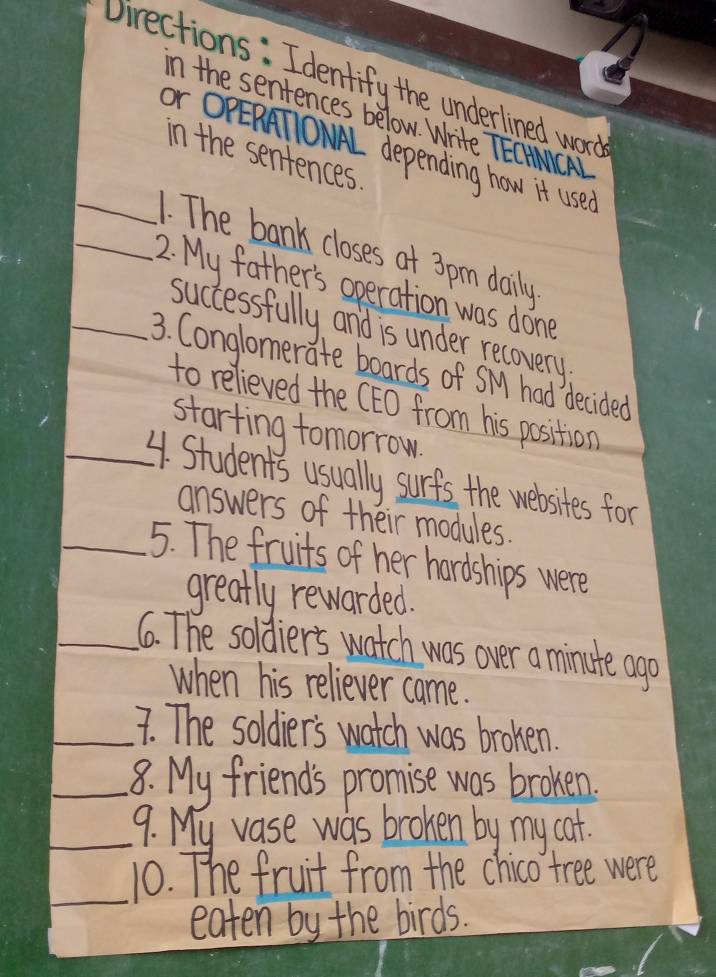 Directions: Identify the underlined words
in the sentences below. Write TECHNICAL
or OPERATIONAL depending how it used
in the sentences.
1. The bank closes at 3pm daily.
2. My father's operation was done
successfully and is under recovery.
3. Conglomerate boards of SM had decided
to relieved the CEO from his position
starting tomorrow.
4. Students usually surfs the websites for
answers of their modules.
5. The fruits of her hardships were
greatly rewarded.
6. The soldier's watch was over a minute ago
when his reliever came.
7. The soldier's watch was broken.
8. My friend's promise was broken.
9. My vase was broken by my cat.
10. The fruit from the chico tree were
eaten by the birds.